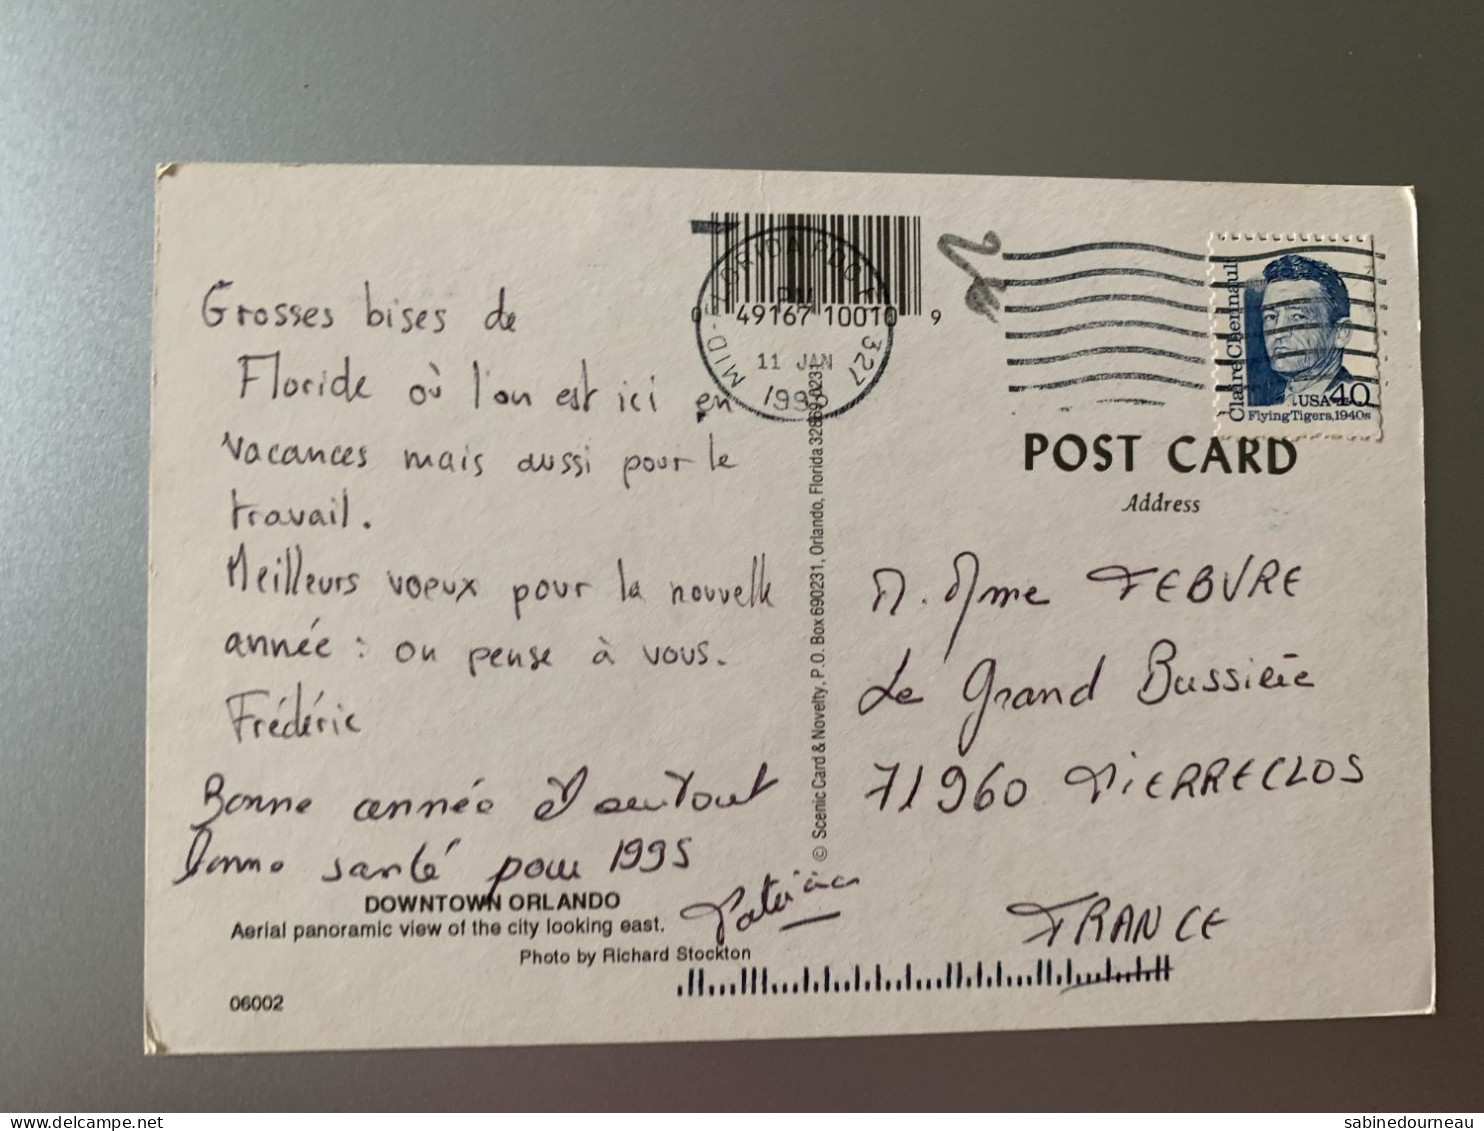 Grosses bises de
Floride où l'on est ici en
vacances mais aussi pour le
travail.
Meilleurs voeux pour la nouvelle
année : on pense à vous.
Frédéric
Bonne année et surtout
bonne santé pour 1995
DOWNTOWN ORLANDO
Aerial panoramic view of the city looking east.
Photo by Richard Stockton
06002
0 49167 10010 9
MID-FLORIDA 327
11 JAN
© Scenic Card & Novelty, P.O. Box 690231, Orlando, Florida 32869-0231
Claire Chennault
USA 40
Flying Tigers, 1940s
POST CARD
Address
M. Mme FEBVRE
Le Grand Bussière
71960 PIERRECLOS
FRANCE
sabinedourneau